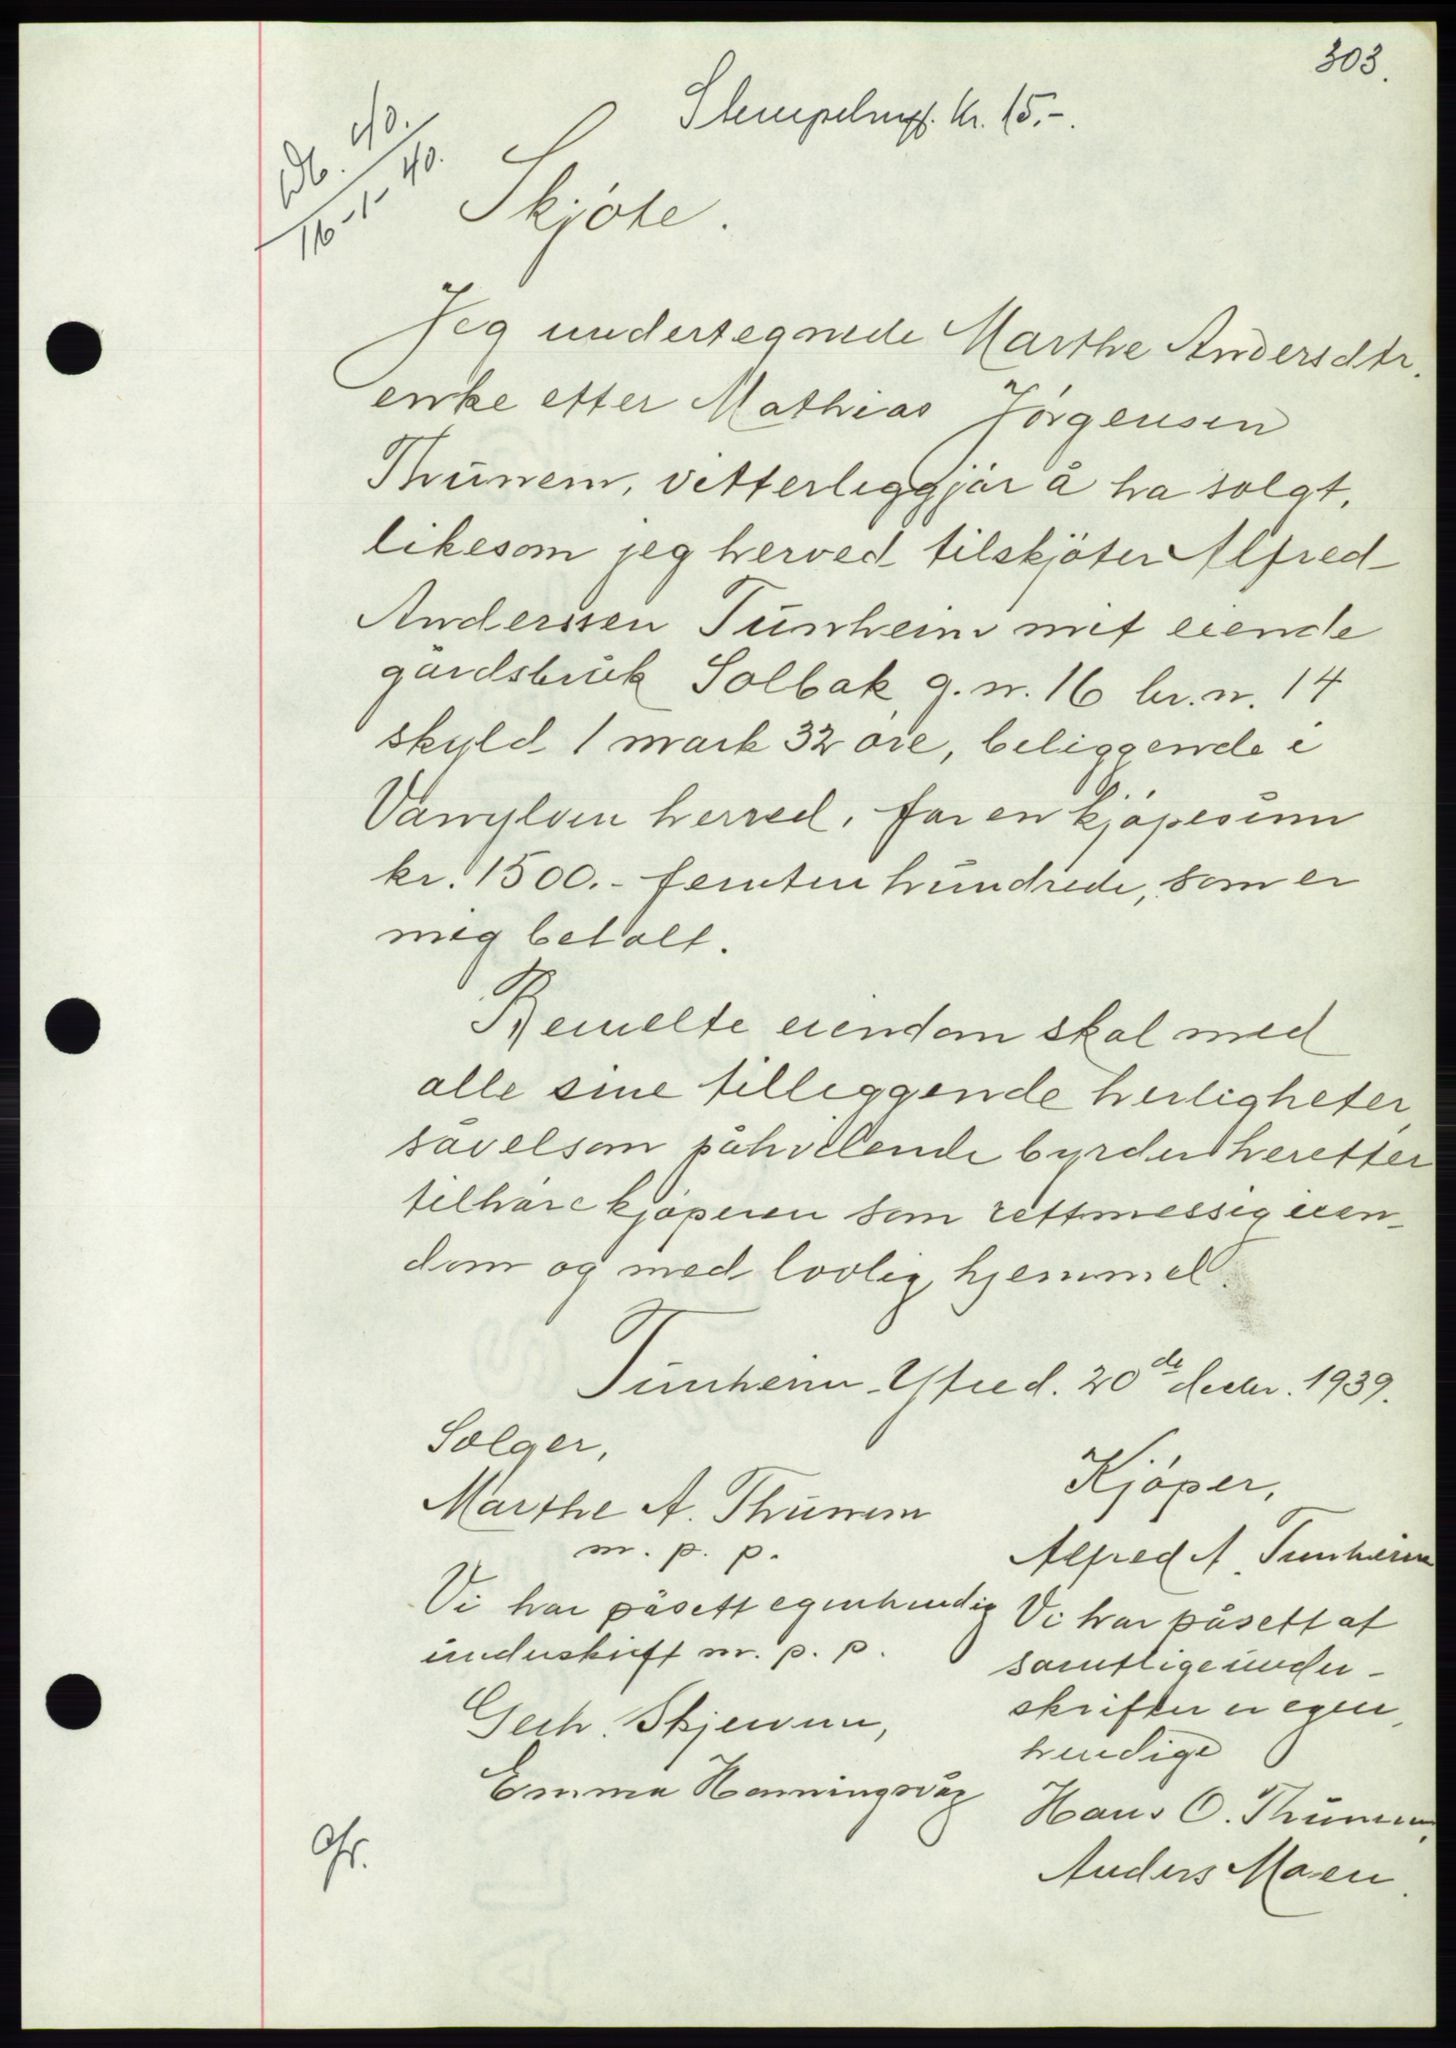 303.
Stempelmf. kr. 15.-.
40.
16-1-40.
Skjöte.
Jeg undertegnede Marthe Andersdtr.
enke etter Mathias Jörgensen
Thunem, vitterliggjör å ha solgt,
likesom jeg herved tilskjöter Alfred
Anderssen Tunheim mit eiende
gårdsbruk Solbak, g. nr. 16 br. nr. 14
skyld 1 mark 32 öre, beliggende i
Vanylven herred, for en kjöpesum
kr. 1500.- femten hundrede, som er
mig betalt.
Bemelte eiendom skal med
alle sine tilliggende herligheter,
såvelsom påhvilende byrder heretter
tilhöre kjöperen som rettmessig eien-
dom og med lovlig hjemmel.
Tunheim - Ytred. 20de decbr. 1939.
Sælger,
Marthe A. Thunem
m. p. p.
Vi har påsett egenhendig
underskrift m. p. p.
Skjervum,
Emma Henningsvåg
Kjöper,
Alfred A. Tunheim
Vi har påsett at
samtlige under-
skrifter er egen-
hendige
Hans O. Thunem,
Anders Moen.